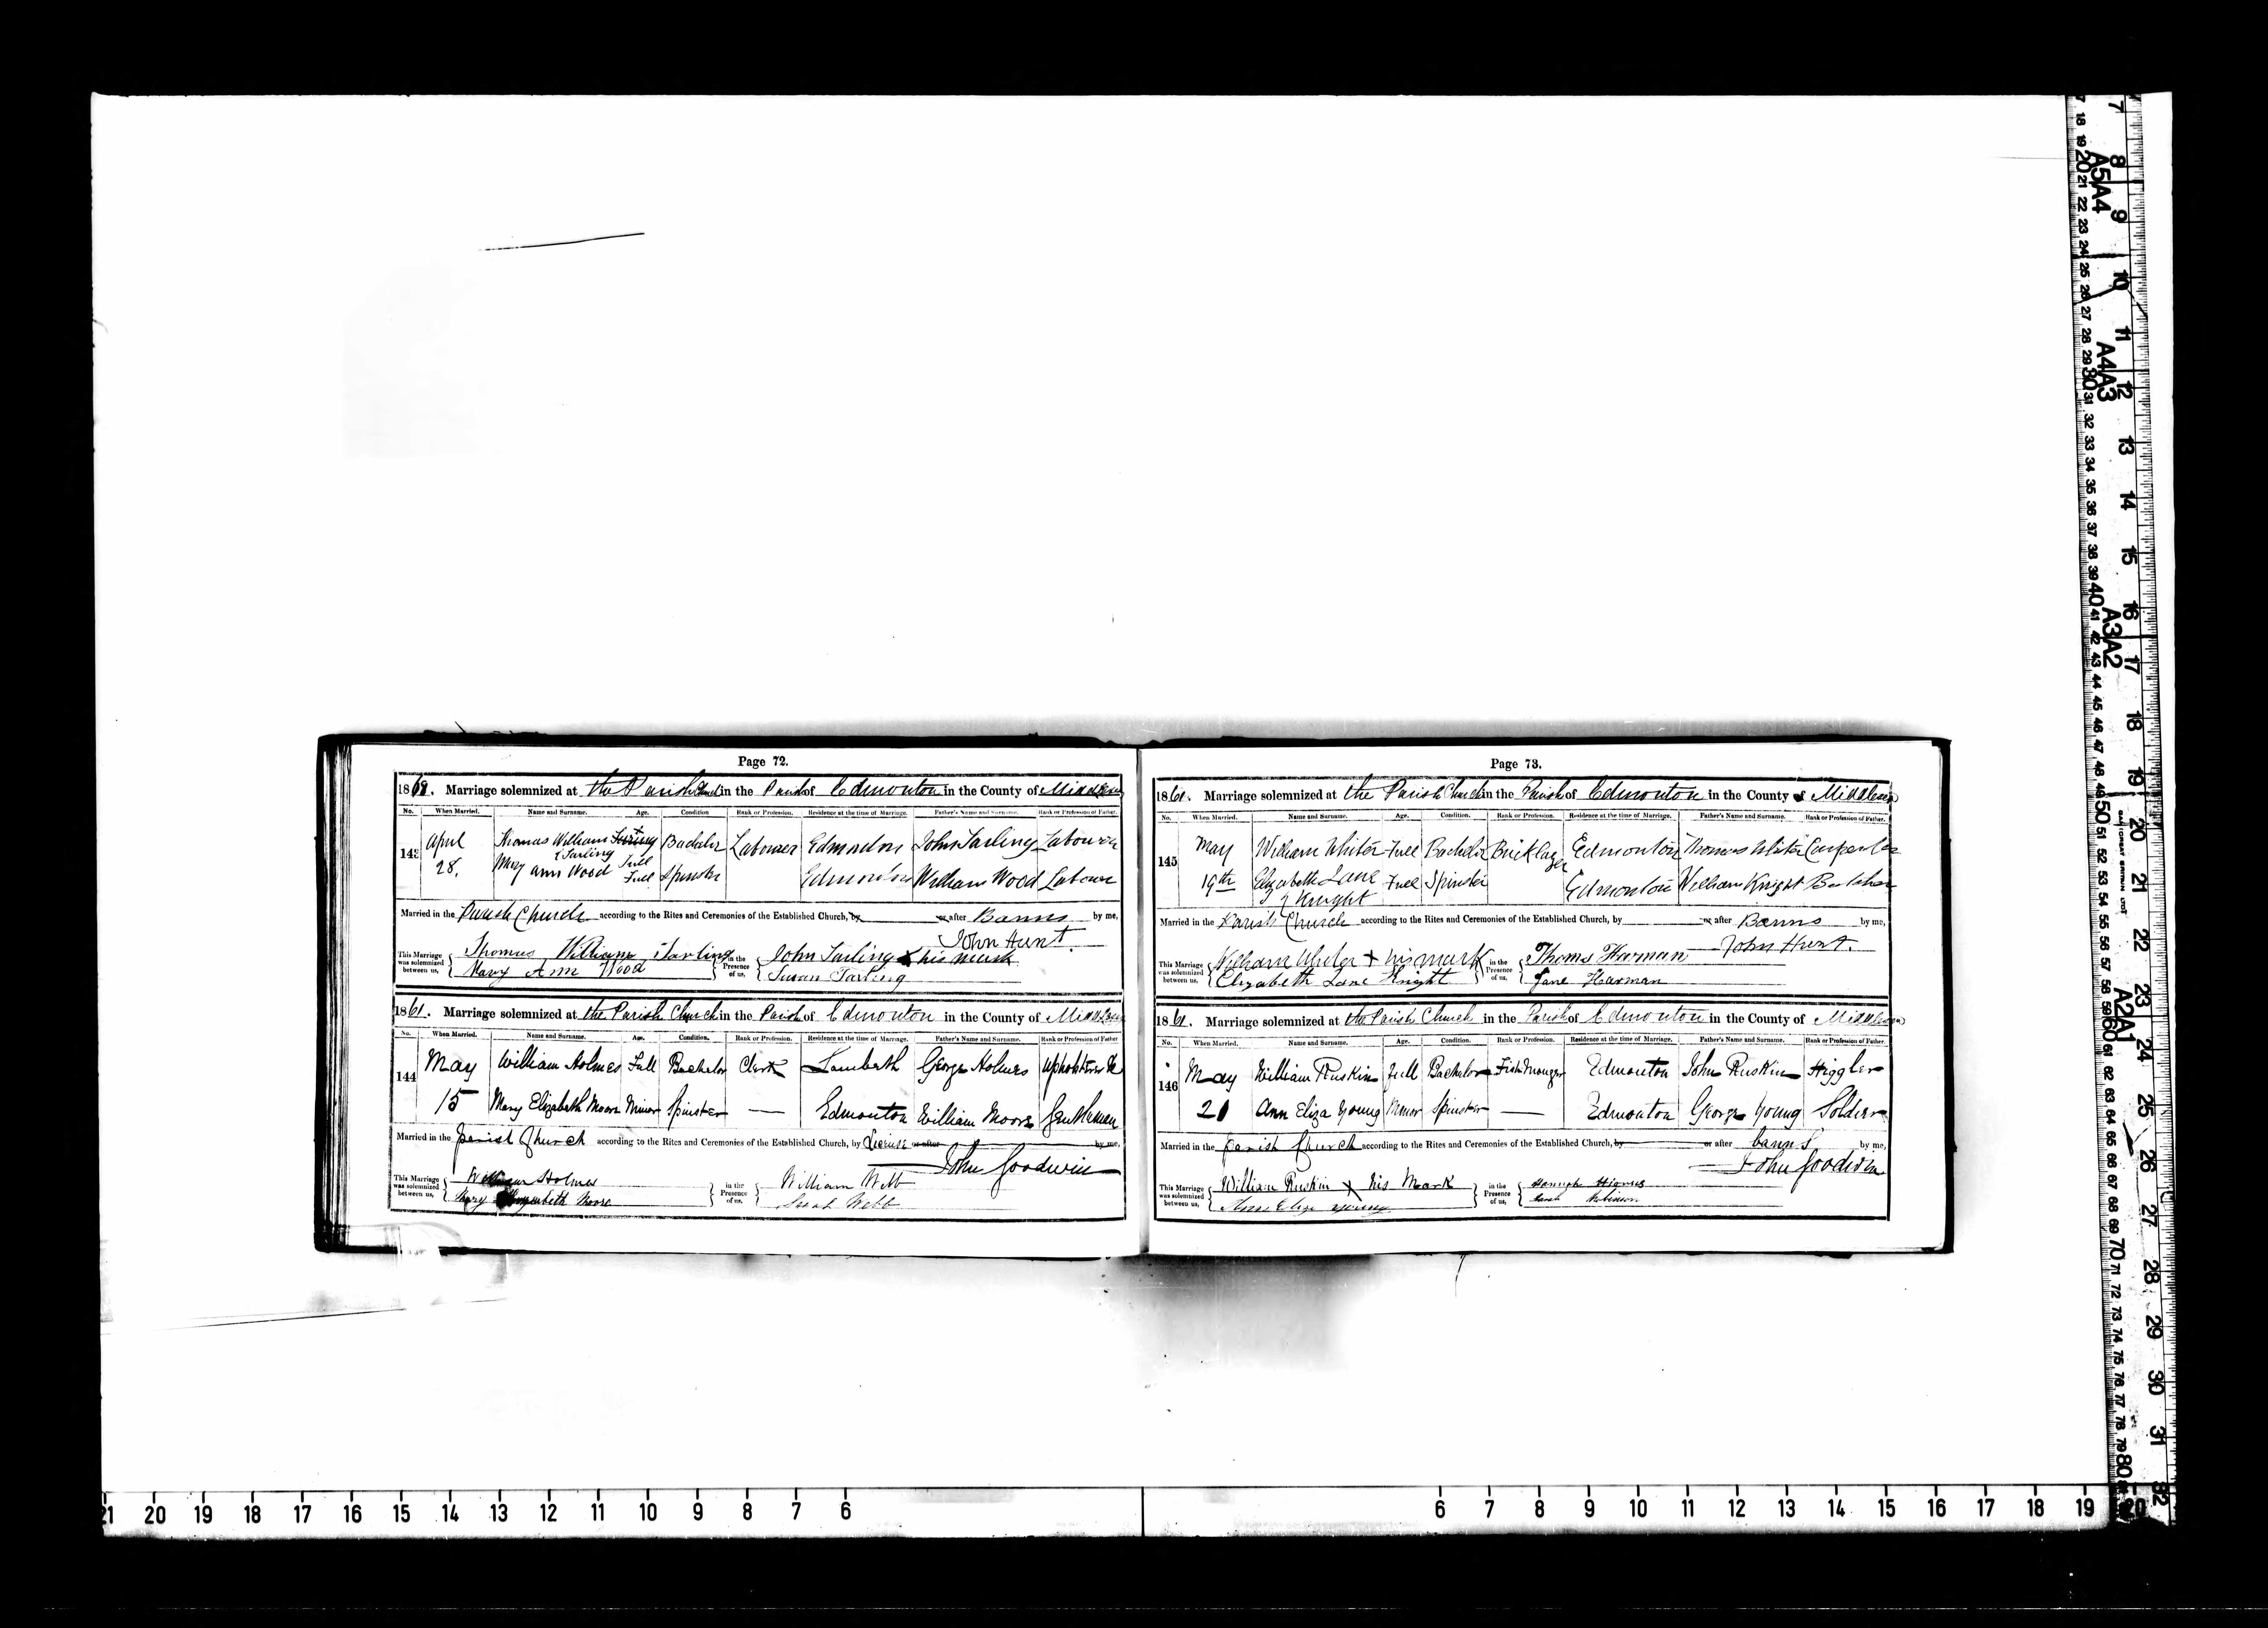 Page 72.
1861. Marriage solemnized at the Parish Church in the Parish of Edmonton in the County of Middlesex
No. When Married. Name and Surname. Age. Condition Rank or Profession. Residence at the time of Marriage. Father's Name and Surname. Rank or Profession of Father.
143 April 28. Thomas William Tarling Full Bachelor Labourer Edmonton John Tarling Labourer
Mary Ann Wood Full Spinster Edmonton William Wood Labourer
Married in the Parish Church according to the Rites and Ceremonies of the Established Church, by or after Banns by me,
John Hunt.
This Marriage was solemnized between us, Thomas William Tarling in the Presence of us, John Tarling X his mark
Mary Ann Wood Susan Tarling
1861. Marriage solemnized at the Parish Church in the Parish of Edmonton in the County of Middlesex
No. When Married. Name and Surname. Age. Condition. Rank or Profession. Residence at the time of Marriage. Father's Name and Surname. Rank or Profession of Father
144 May 15 William Holmes Full Bachelor Clerk Lambeth George Holmes Upholsterer
Mary Elizabeth Moore Minor Spinster — Edmonton William Moore Gentleman
Married in the Parish Church according to the Rites and Ceremonies of the Established Church, by License or after by me,
John Goodwin
This Marriage was solemnized between us, William Holmes in the Presence of us, William Webb
Mary Elizabeth Moore Sarah Webb
Page 73.
1861. Marriage solemnized at the Parish Church in the Parish of Edmonton in the County of Middlesex
No. When Married. Name and Surname. Age. Condition. Rank or Profession. Residence at the time of Marriage. Father's Name and Surname. Rank or Profession of Father.
145 May 19th William Whiter Full Bachelor Bricklayer Edmonton Thomas Whiter Carpenter
Elizabeth Lane Knight Full Spinster Edmonton William Knight Butcher
Married in the Parish Church according to the Rites and Ceremonies of the Established Church, by or after Banns by me,
John Hunt.
This Marriage was solemnized between us, William Whiter + his mark in the Presence of us, Thomas Harman
Elizabeth Lane Knight Jane Harman
1861. Marriage solemnized at the Parish Church in the Parish of Edmonton in the County of Middlesex
No. When Married. Name and Surname. Age. Condition. Rank or Profession. Residence at the time of Marriage. Father's Name and Surname. Rank or Profession of Father.
146 May 21 William Ruskin Full Bachelor Fishmonger Edmonton John Ruskin Higgler
Ann Eliza Young Minor Spinster — Edmonton George Young Soldier
Married in the Parish Church according to the Rites and Ceremonies of the Established Church, by or after banns by me,
John Goodwin
This Marriage was solemnized between us, William Ruskin X his Mark in the Presence of us,
Ann Eliza Young Sarah Robinson
21 20 19 18 17 16 15 14 13 12 11 10 9 8 7 6
6 7 8 9 10 11 12 13 14 15 16 17 18 19
A5 A4
A4 A3
A3 A2
A2 A1